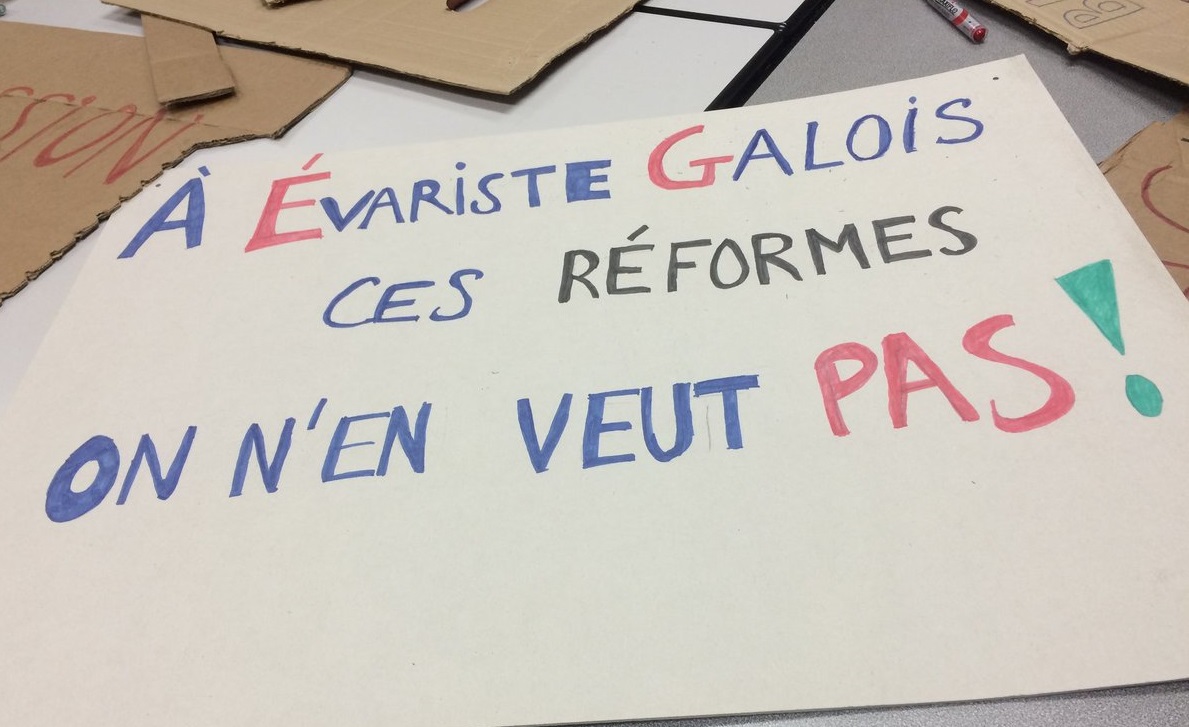 À ÉVARISTE GALOIS
CES RÉFORMES
ON N'EN VEUT PAS!